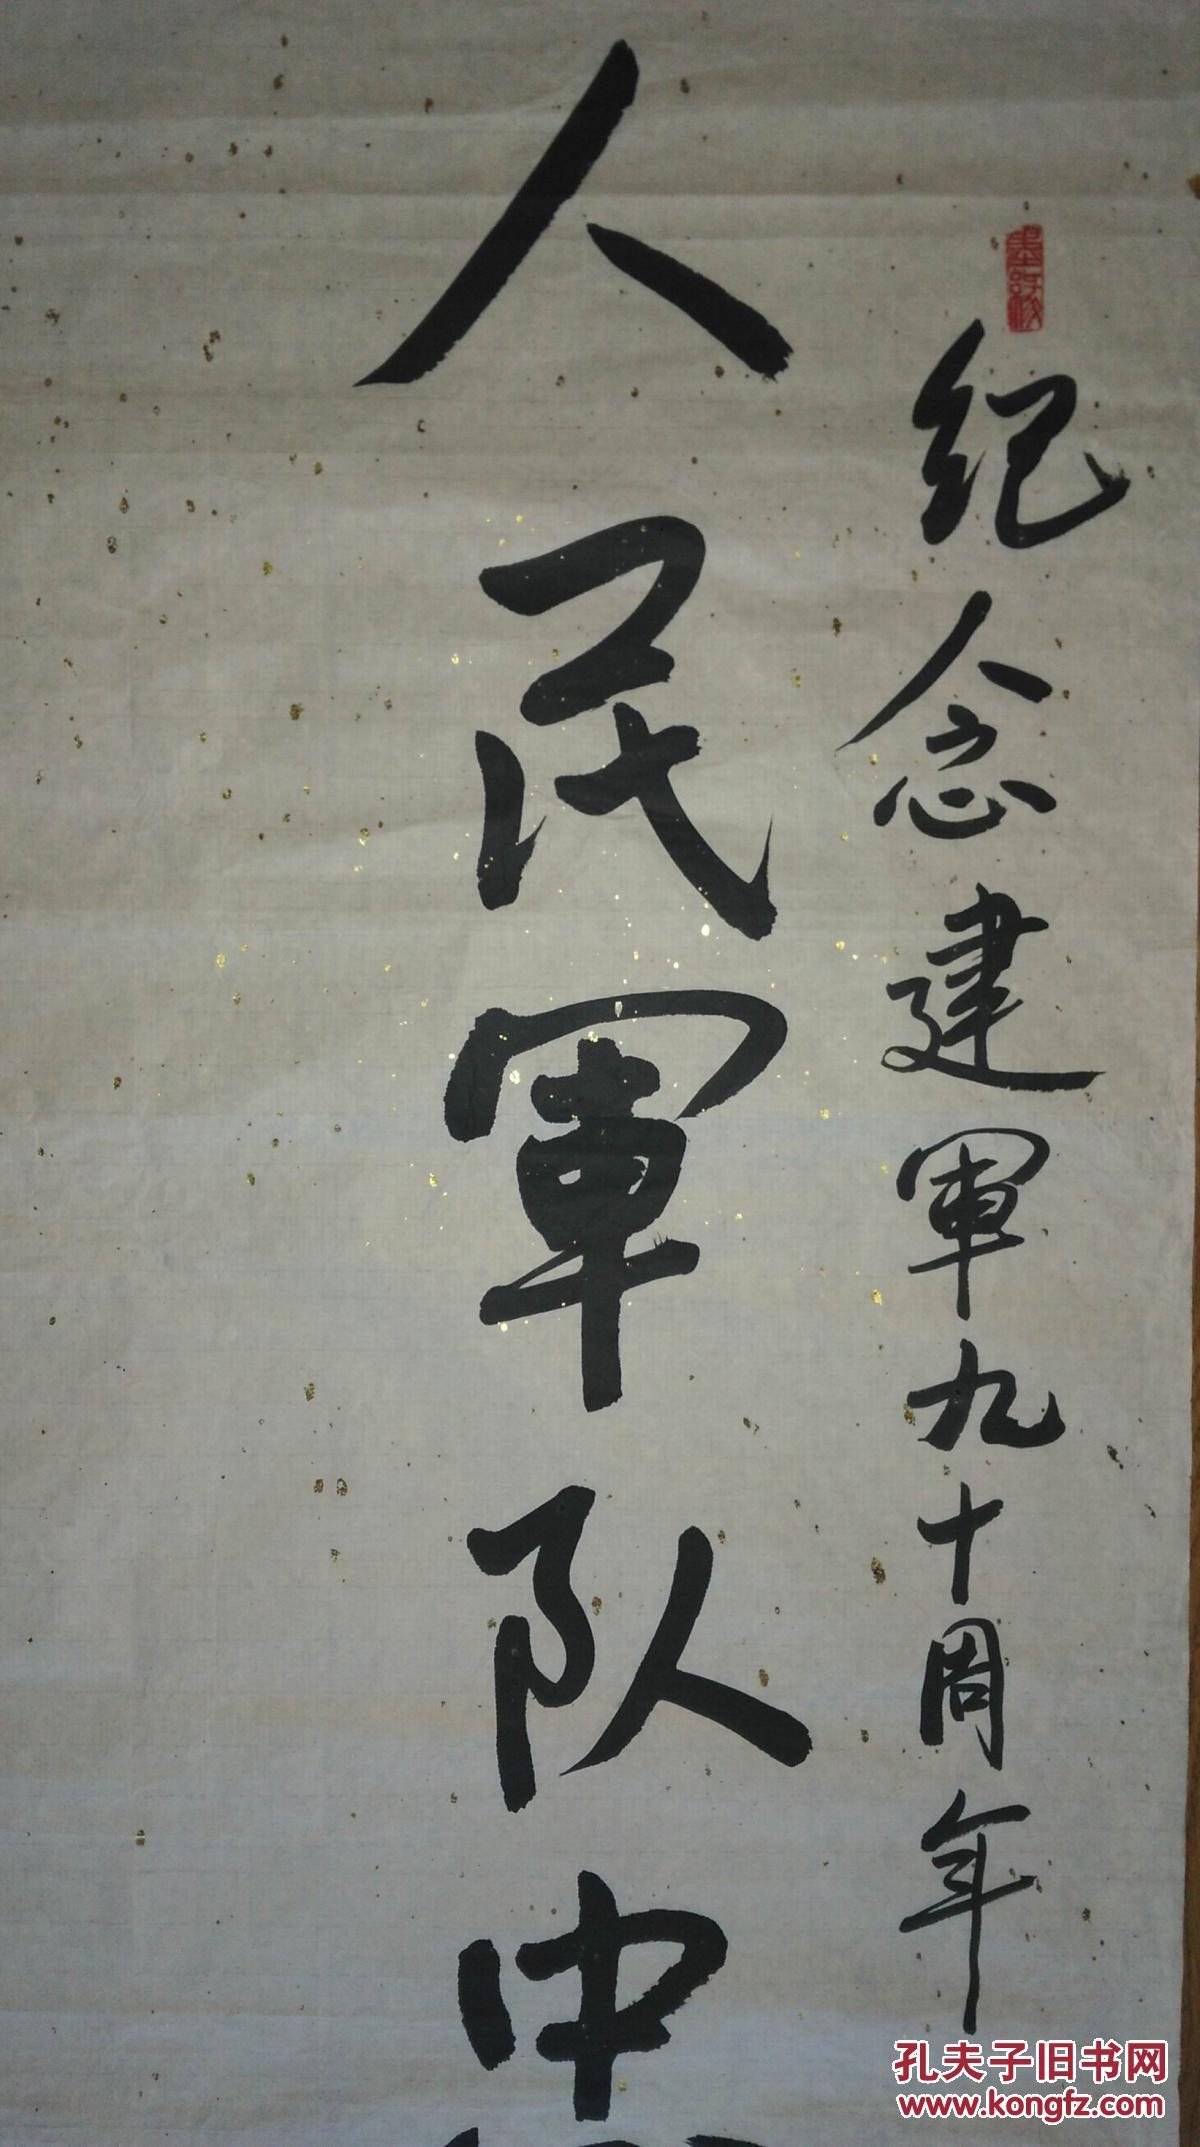 纪念建軍九十周年
人民軍队中
孔夫子旧书网
www.kongfz.com